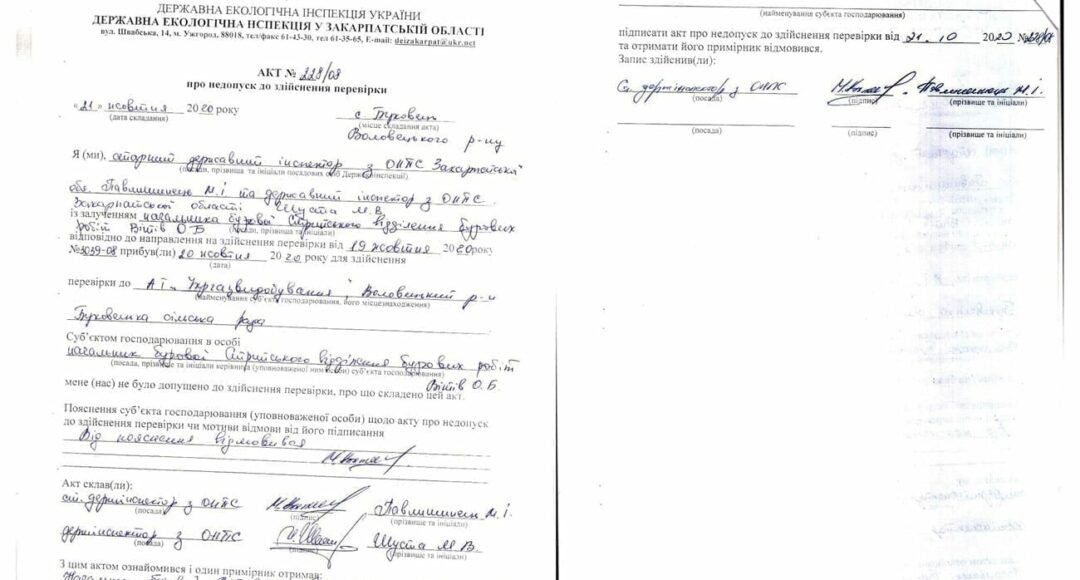 ДЕРЖАВНА ЕКОЛОГІЧНА ІНСПЕКЦІЯ УКРАЇНИ
ДЕРЖАВНА ЕКОЛОГІЧНА НСПЕКЦІЯ У ЗАКАРПАТСЬКІЙ ОБЛАСТІ
вул. Швабська, 14, м. Ужгород, 88018, тел/факс 61-43-30, тел 61-35-65, E-mail: deizakarpat@ukr.net
АКТ № 228/08
про недопуск до здійснення перевірки
«21» жовтня 2020 року
(дата складання)
с. Буковець
(місце складання акта)
Воловецького р-ну
Я (ми), старший державний інспектор з ОНПС Закарпатської
(посади, прізвища та ініціали посадових осіб Держекоінспекції)
обл. Павлишинець М.І. та державний інспектор з ОНПС
Закарпатської області Шуста М.В.
із залученням начальника бурової Стрийського відділення бурових
(посади, прізвища та ініціали)
робіт Вітів О.Б
відповідно до направлення на здійснення перевірки від 19 жовтня 2020року
№3039-08 прибув(ли) 20 жовтня 2020 року для здійснення
(дата)
перевірки до АТ „Укргазвидобування", Воловецький р-н
(найменування суб'єкта господарювання, його місцезнаходження)
Буковецька сільська рада
Суб'єктом господарювання в особі
начальник бурової Стрийського відділення бурових робіт
(посада, прізвище та ініціали керівника (уповноваженої ним особи) суб'єкта господарювання)
Вітів О.Б.
мене (нас) не було допущено до здійснення перевірки, про що складено цей акт.
Пояснення суб'єкта господарювання (уповноваженої особи) щодо акту про недопуск
до здійснення перевірки чи мотиви відмови від його підписання
Від пояснення відмовився
Акт склав(ли):
ст. держінспектор з ОНПС Павлишинець М.І.
(посада) (підпис) (прізвище та ініціали)
держінспектор з ОНПС Шуста М.В.
(посада) (підпис) (прізвище та ініціали)
З цим актом ознайомився і один примірник отримав:
(найменування суб'єкта господарювання)
підписати акт про недопуск до здійснення перевірки від 21.10 2020 №228/08
та отримати його примірник відмовився.
Запис здійснив(ли):
Ст. держінспектор з ОНПС Павлишинець М.І.
(посада) (підпис) (прізвище та ініціали)
(посада) (підпис) (прізвище та ініціали)